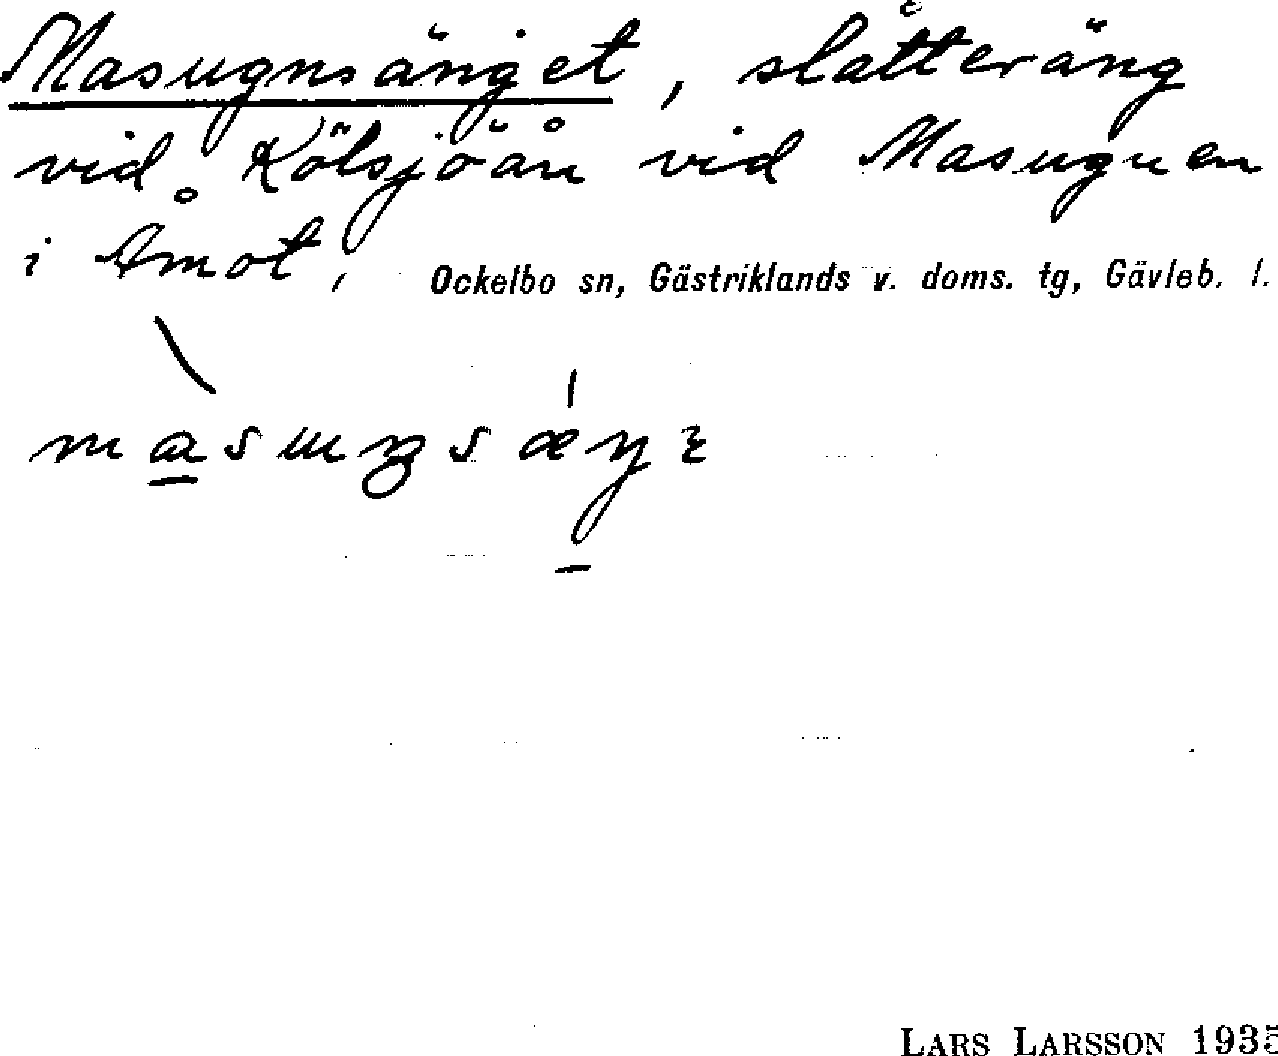 Masugnsänget, slåtteräng
vid Kölsjöån vid Masugnen
i Åmot, Ockelbo sn, Gästriklands v. doms. tg, Gävleb. l.
LARS LARSSON 1935